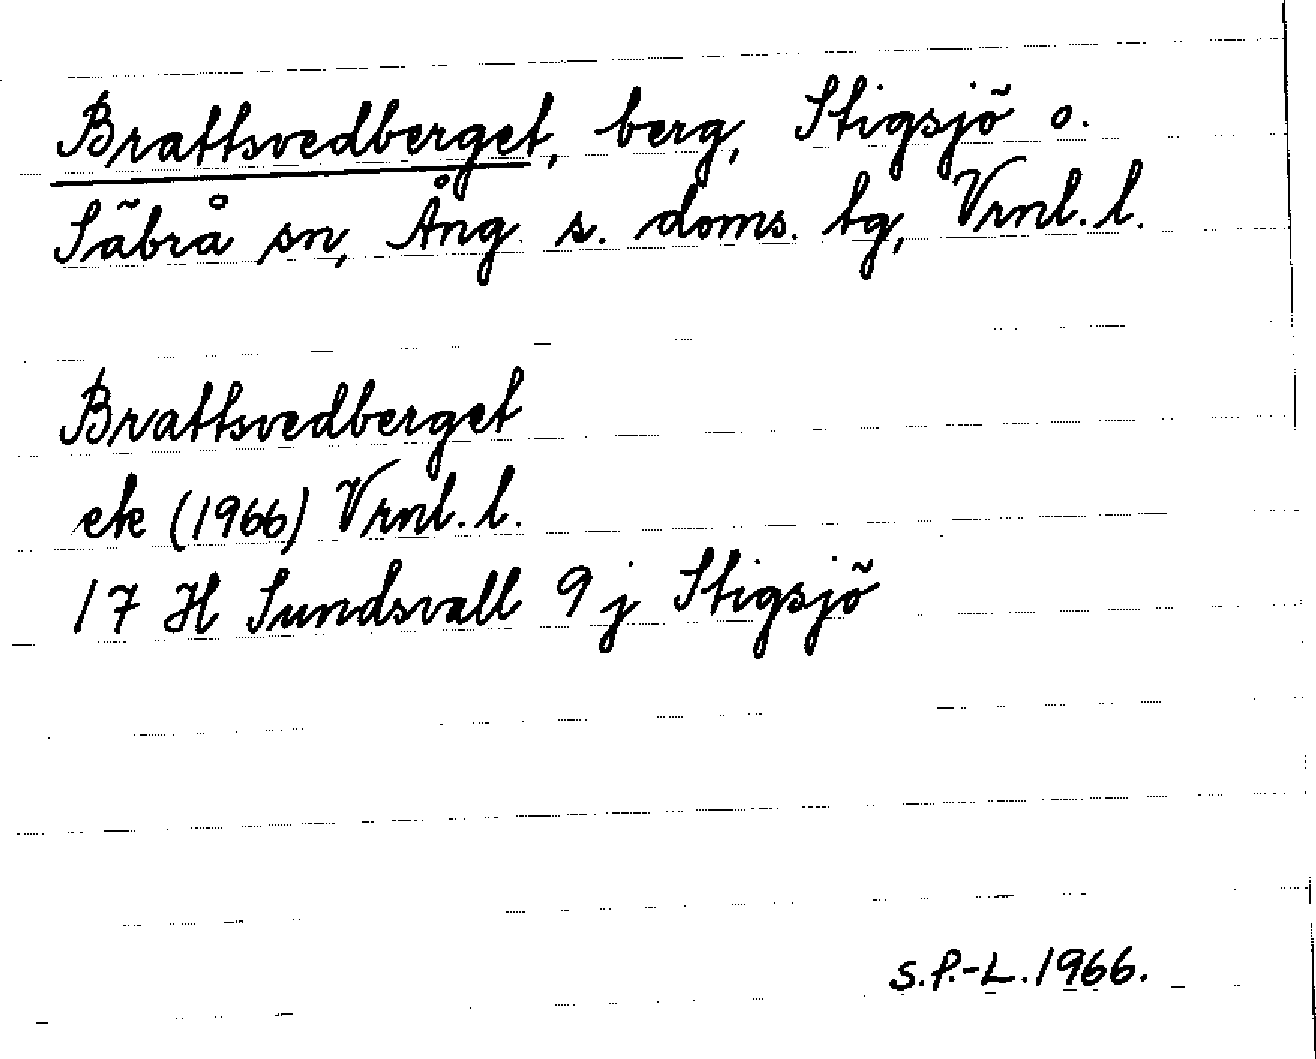 Brattsvedberget, berg, Stigsjö o.
Säbrå sn, Ång s. doms. tg, Vrnl. l.
Brattsvedberget
ek (1966) Vrnl. l.
17 H Sundsvall 9 j Stigsjö
S.P.-L.1966.